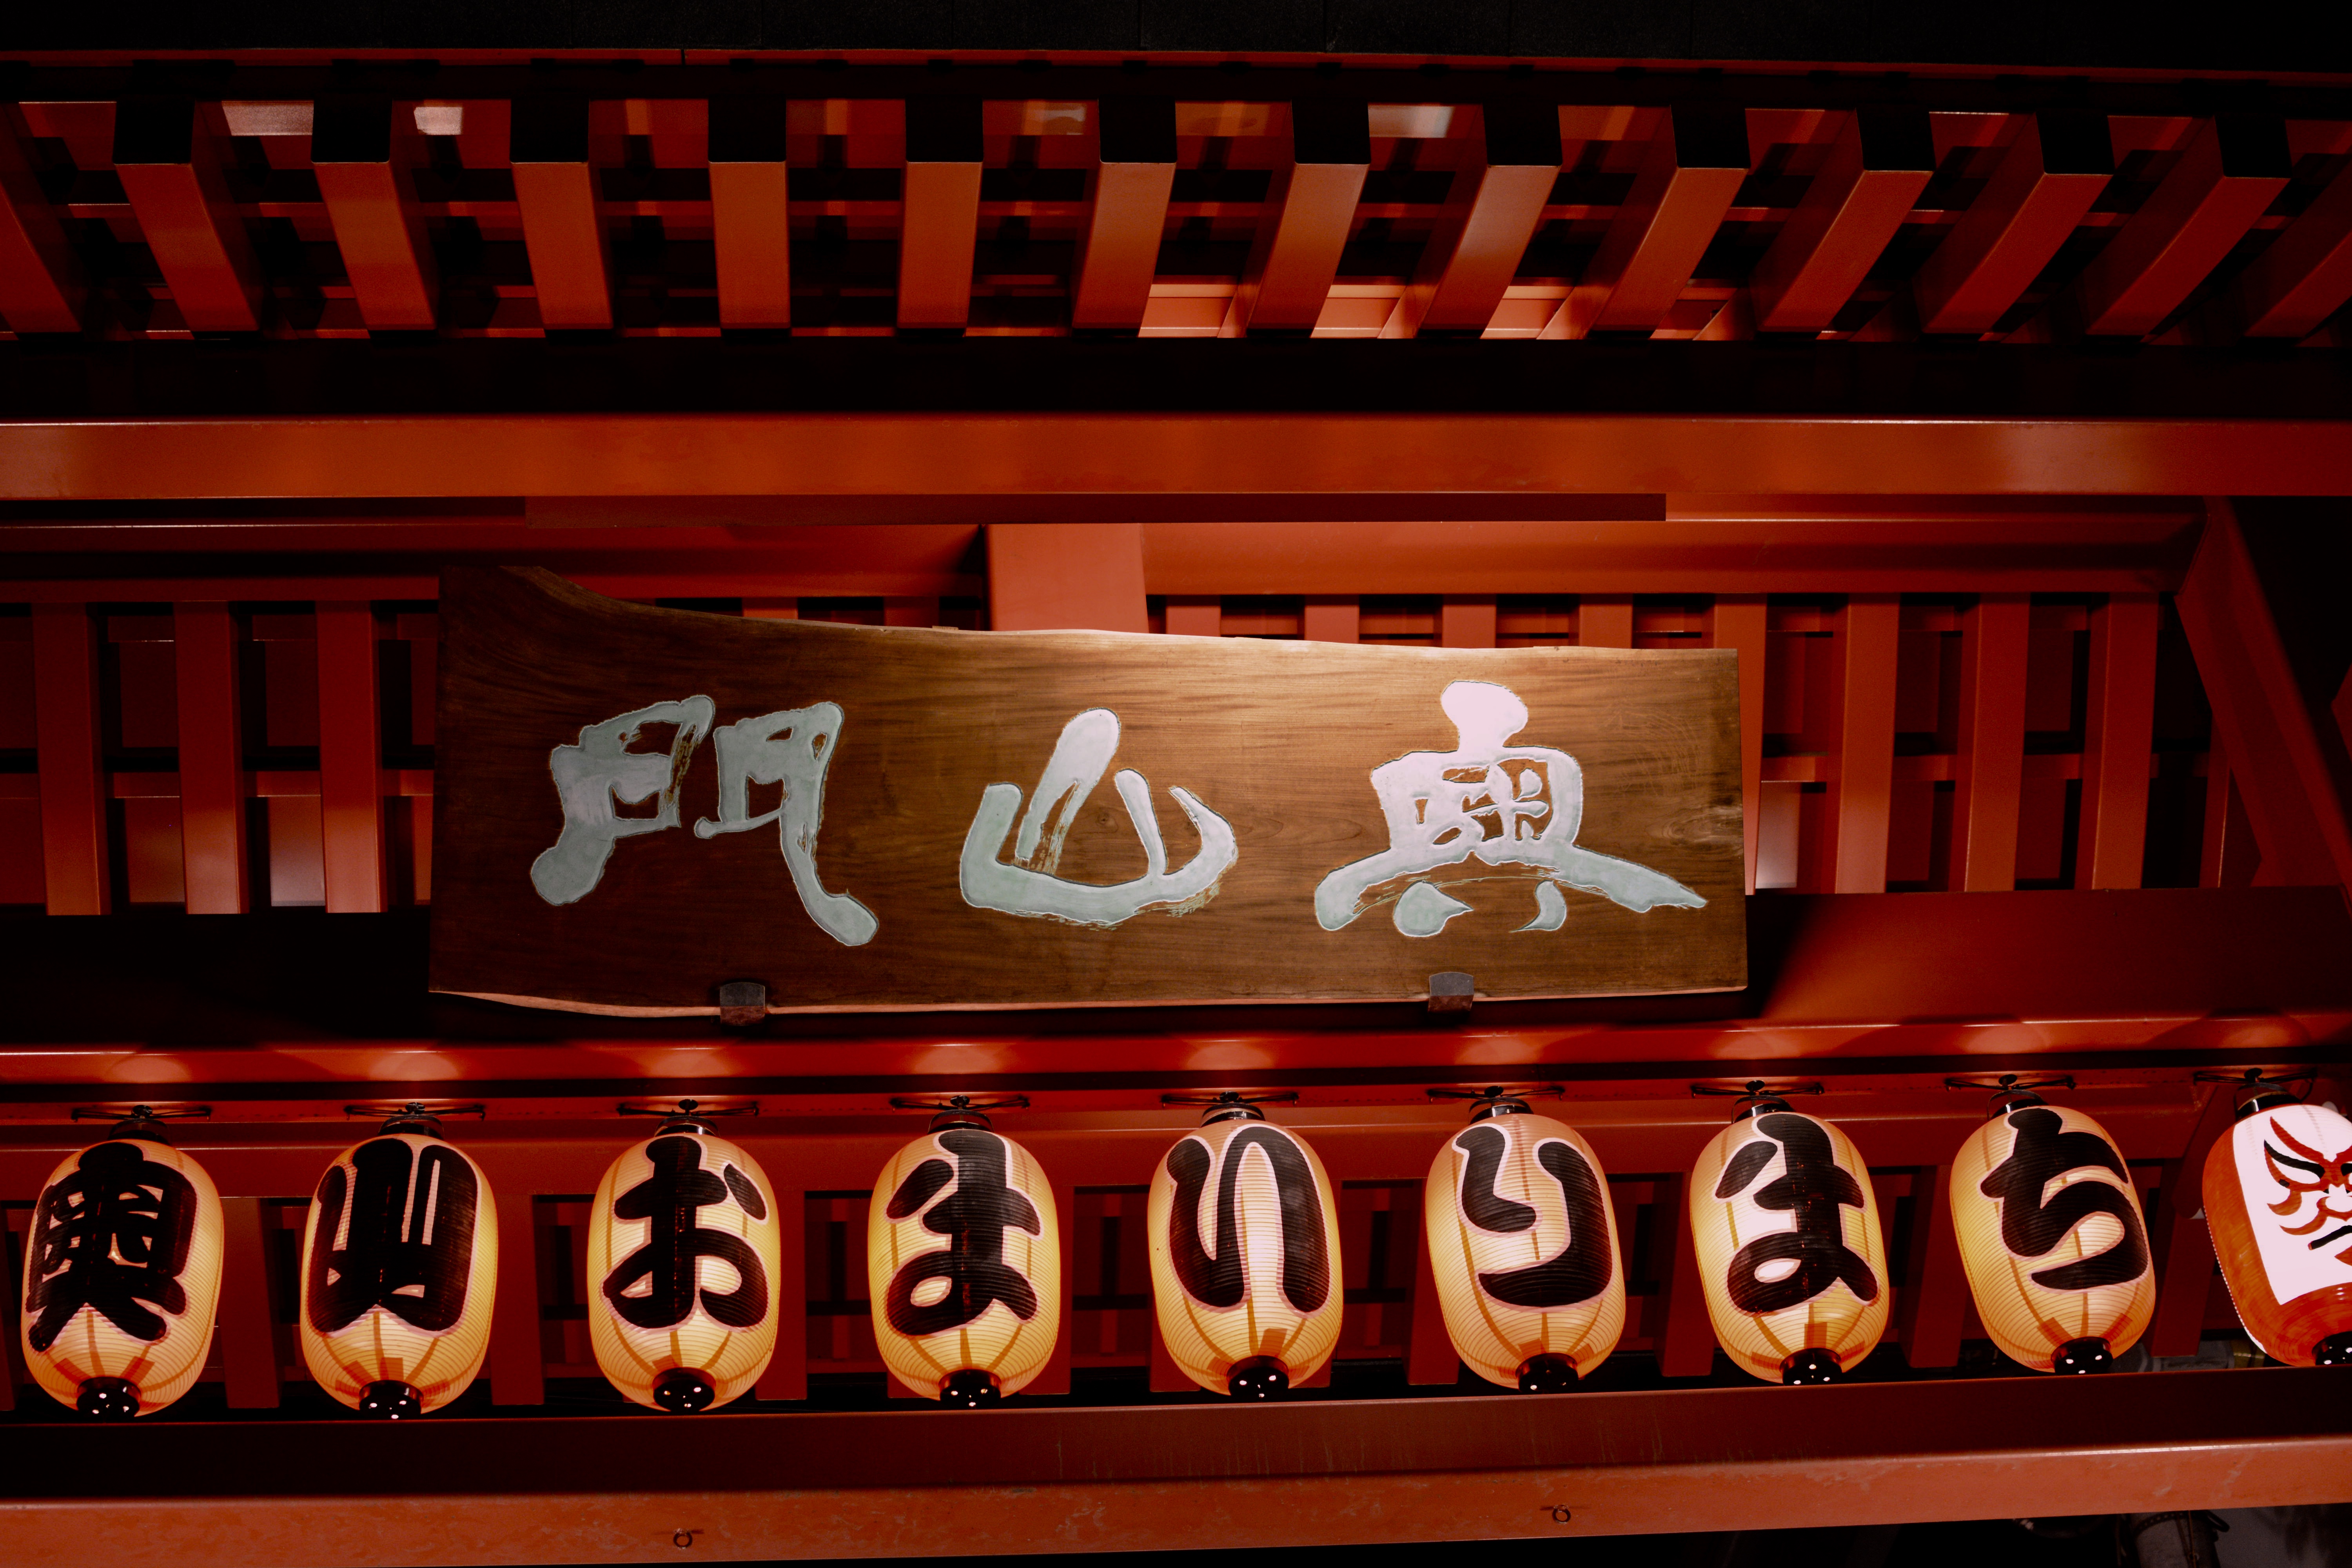 奥山門
奥山おまいりまち